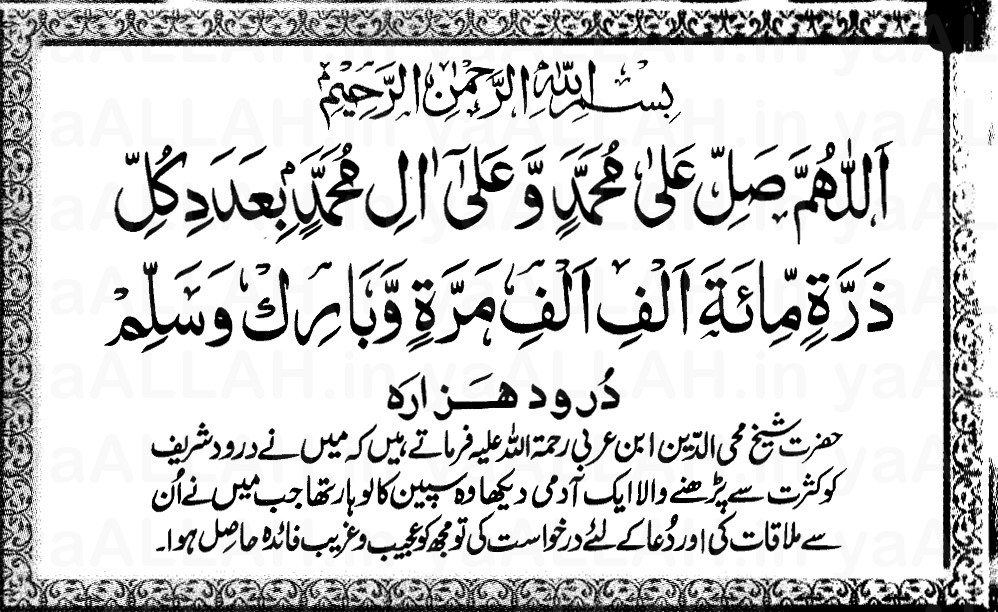 بِسْمِ اللّٰهِ الرَّحْمٰنِ الرَّحِيْمِ
اَللّٰهُمَّ صَلِّ عَلٰى مُحَمَّدٍ وَّ عَلٰٓى اٰلِ مُحَمَّدٍ بِعَدَدِ كُلِّ
ذَرَّةٍ مِّائَةَ اَلْفِ اَلْفِ مَرَّةٍ وَّ بَارِكْ وَسَلِّمْ
دُرود ہزارہ
حضرت شیخ محی الدّین ابن عربی رحمۃ اللہ علیہ فرماتے ہیں کہ میں نے درود شریف
کو کثرت سے پڑھنے والا ایک آدمی دیکھا وہ سپین کا لوہار تھا جب میں نے اُن
سے ملاقات کی اور دُعا کے لئے درخواست کی تو مجھ کو عجیب و غریب فائدہ حاصل ہوا۔
yaALLAH.in